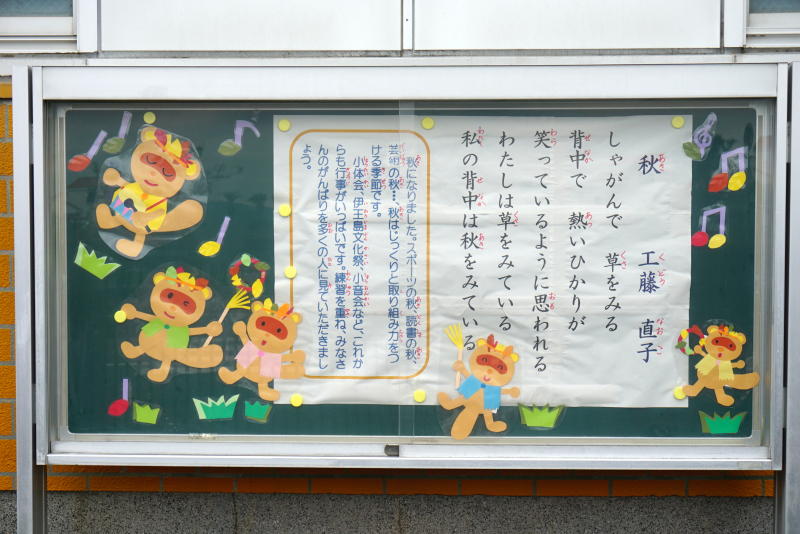 秋　工藤　直子
しゃがんで　草をみる
背中で　熱いひかりが
笑っているように思われる
わたしは草をみている
私の背中は秋をみている
秋になりました。スポーツの秋、読書の秋、
芸術の秋…、秋はじっくりと取り組み力をつ
ける季節です。
小体会、伊王島文化祭、小音会など、これか
らも行事がいっぱいです。練習を重ね、みなさ
んのがんばりを多くの人に見ていただきまし
ょう。